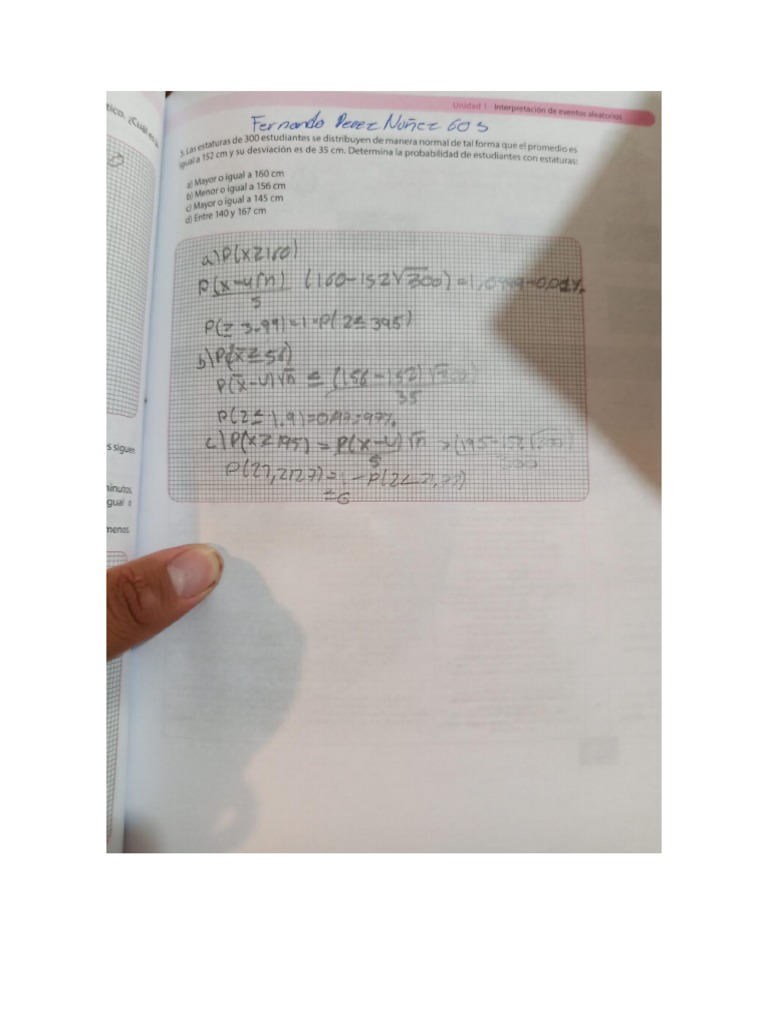 tico. ¿Cuál es la
Unidad 1 Interpretación de eventos aleatorios
Fernando Perez Nuñez 60 s
5. Las estaturas de 300 estudiantes se distribuyen de manera normal de tal forma que el promedio es
igual a 152 cm y su desviación es de 35 cm. Determina la probabilidad de estudiantes con estaturas:
a) Mayor o igual a 160 cm
b) Menor o igual a 156 cm
c) Mayor o igual a 145 cm
d) Entre 140 y 167 cm
a) P(X≥160)
P(x-u√n) (160-152√300)
s
P(≥ 3.99)=1-P(2≤395)
b) P(x̄≥56)
P(x̄-u)√n ≤ (156-152)√300
35
P(2≤1.9)=0.97=97%
c) P(x≥195) = P(x-u)√n > (195-152√300)
s 300
P(27,2127)=1-P(2<
=6
s siguen
minutos
igual a
menos